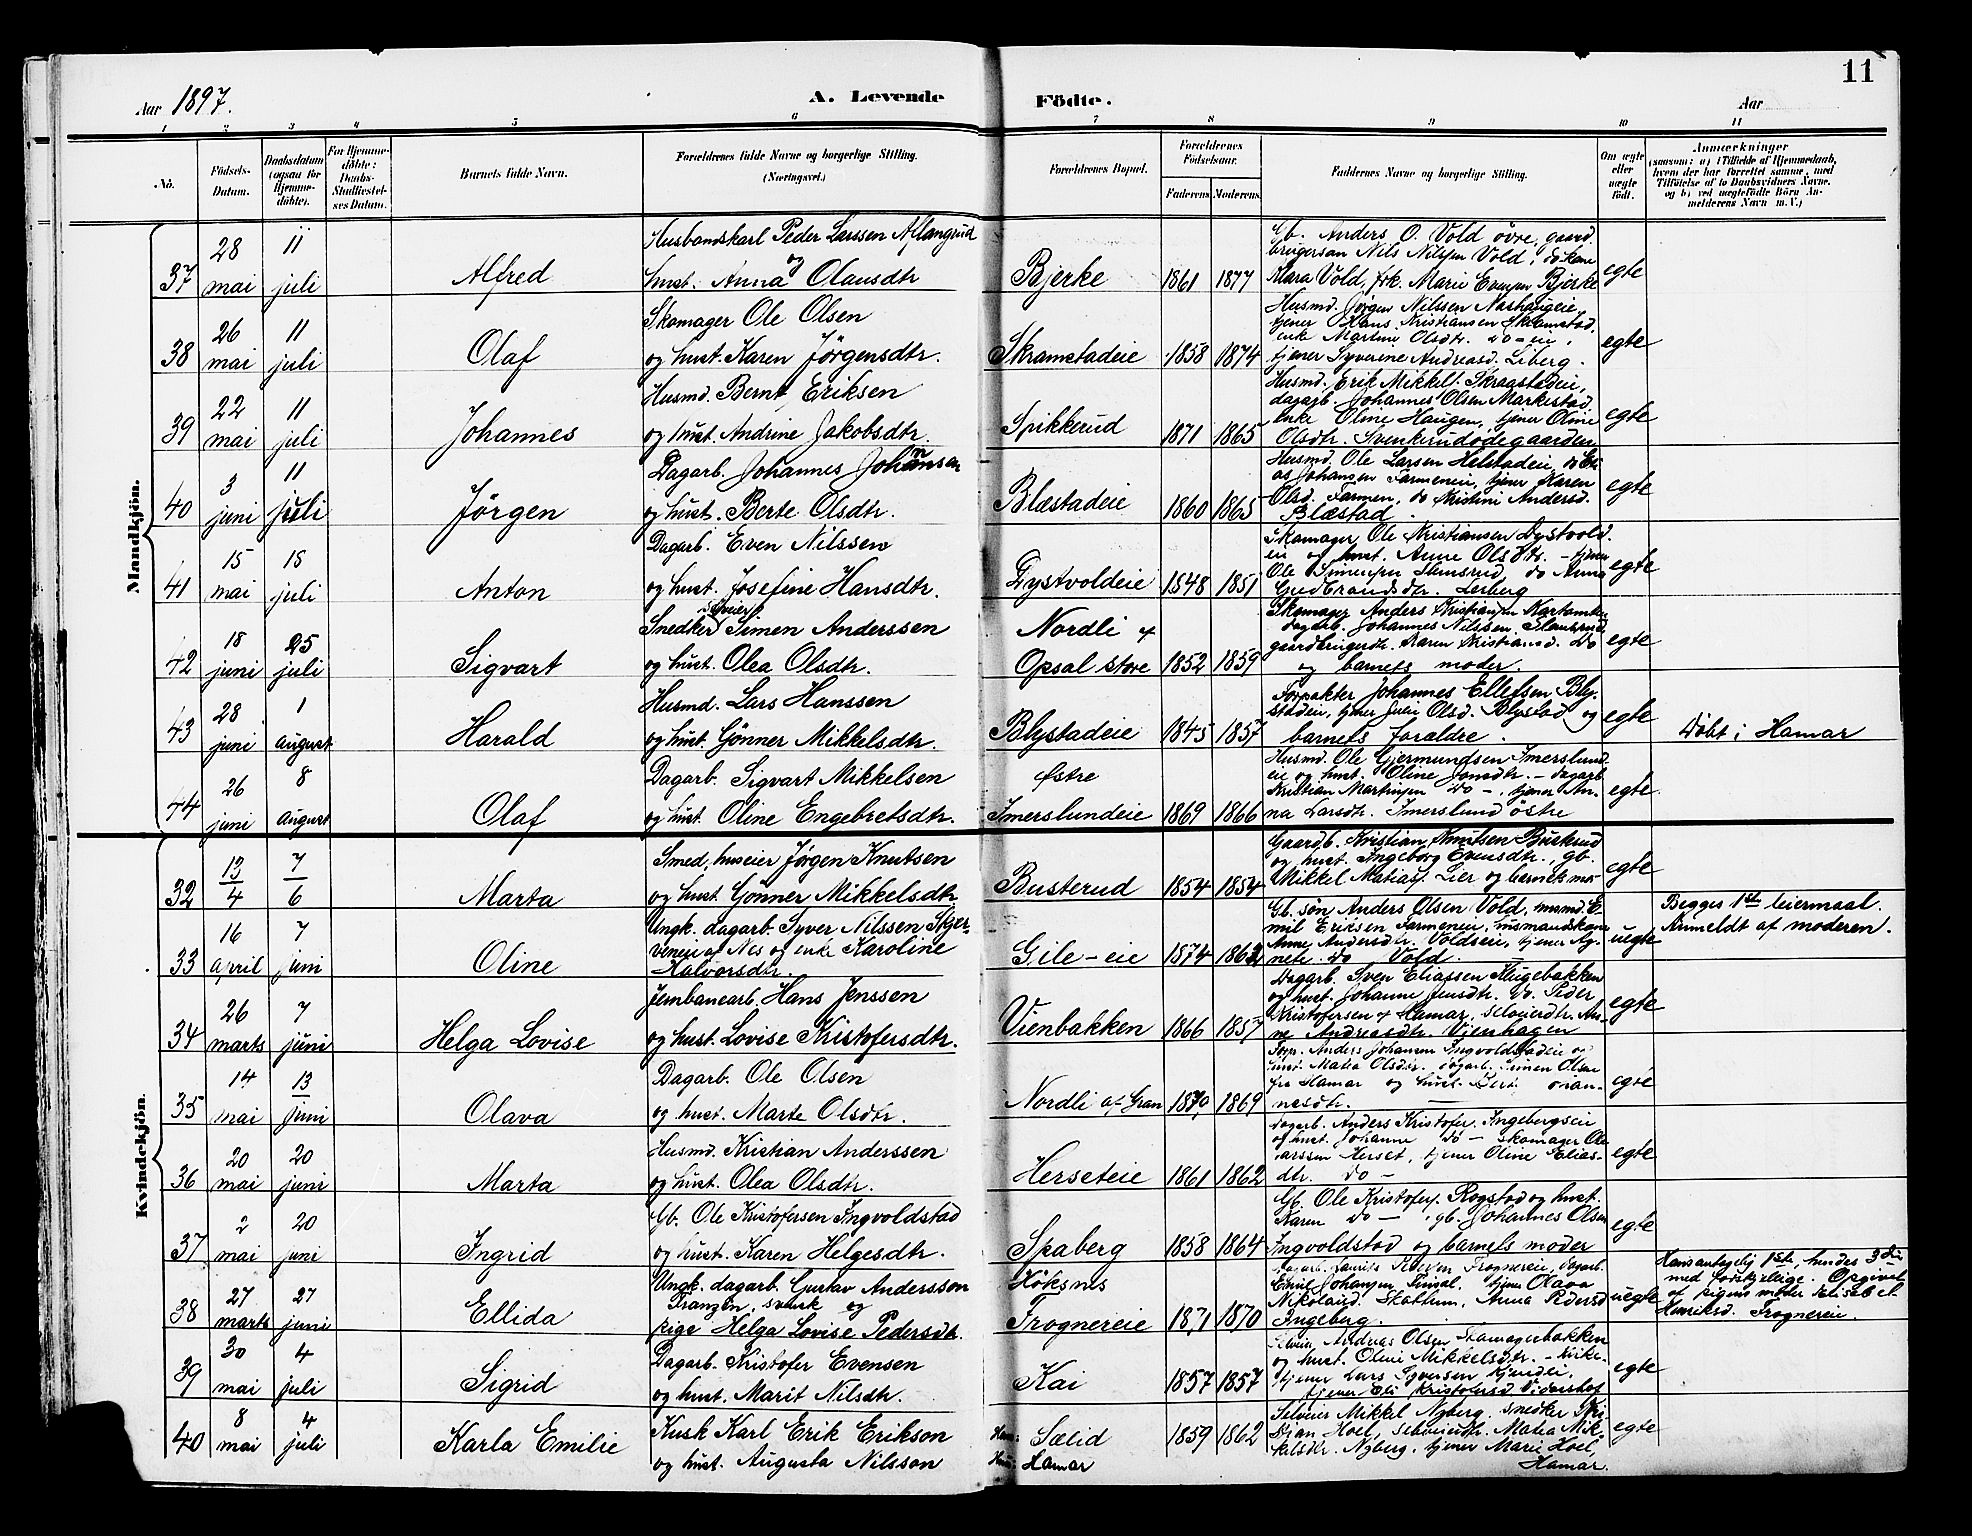 Aar 1897.
A. Levende Födte.
Aar
11
1 2 3 4 5 6 7 8 9 10 11
No.
Födsels-Datum.
Daabsdatum (ogsaa for Hjemme-döbte).
For Hjemme-döbte: Daabs-Stadfæstel-ses Datum.
Barnets fulde Navn.
Forældrenes fulde Navne og borgerlige Stilling.
(Næringsvei.)
Forældrenes Bopæl.
Forældrenes Födselsaar.
Faderens Moderens
Faddernes Navne og borgerlige Stilling.
Om ægte eller uægte födt.
Anmærkninger
(saasom: a) i Tilfælde af Hjemmedaab,
hvem der har forrettet samme, med
Tilföielse af to Daabsvidners Navne,
og b) ved uægtefödte Börn An-
melderens Navn m. V.)
Mandkjön.
37 28 mai 11 juli Alfred
Husbondskarl Peder Larssen
og hust. Anna Olausdtr
Bjerke 1861 1877
Gb. Anders O. Vold övre, gaard-
brugersön Nils Nilsen Vold, do kone
Mara Vold, frk. Marie Evensen Bjerke
egte
38 26 mai 11 juli Olaf
Skomager Ole Olsen
og hust. Karen Jörgensdtr.
Skramstadeie 1858 1874
Husmd. Jörgen Nilssen Nashaugeie,
tjener Hans Kristiansen Skramstad,
enke Martine Olsdtr. do-eie,
tjener Syverine Andreasd. Liberg.
egte
39 22 mai 11 juli Johannes
Husmd. Bernt Eriksen
og hust. Andrine Jakobsdtr.
Spikkerud 1871 1865
Husmd. Erik Mikkels. Skraastadeie,
dagarb. Johannes Olsen Markestad
enke Oline Haugen, tjener Oline
Olsdtr. Svenkerudödegaarden
egte
40 3 juni 11 juli Jörgen
Dagarb. Johannes Johansen
og hust. Berte Olsdtr.
Blæstadeie 1860 1865
Husmd. Ole Larsen Helstadeie, do
Johansen Farmeneie, tjener Karen
Olsd. Farmen, do Kristine Andersd.
Blæstad.
egte
41 15 mai 18 juli Anton
Dagarb. Even Nilssen
og hust. Josefine Hansdtr.
Dystvoldeie 1848 1851
Skomager Ole Kristiansen Dystvold-
eie og hust. Anne Olsdtr. – tjener
Ole Simensen Stensrud, do Anna
Gudbrandsdtr. Leiberg
egte
42 18 juni 25 juli Sigvart
Snedker selveier Simen Anderssen
og hust. Olea Olsdtr.
Nordli af
Opsal store 1852 1859
Skomager Anders Kristiansen
dagarb. Johannes Nilssen
gaardbrugerdtr. Karen Kristiansd. do
og barnets moder.
egte
43 28 juni 1 august Harald
Husmd. Lars Hanssen
og hust. Gönner Mikkelsdtr.
Blystadeie 1845 1857
Forpakter Johannes Ellefsen Bly-
stadeie, tjener Julie Olsd. Blystad og
barnets forældre.
egte
Döbt i Hamar
44 26 juni 8 august Olaf
Dagarb. Sigvart Mikkelsen
og hust. Oline Engebretsdtr.
Østre
Imerslundeie 1869 1866
Husmd. Ole Gjermundsen Imerslund-
eie og hust. Oline Jonsdtr. – dagarb.
Kristian Martinsen do –, tjener An-
na Larsdtr. Imerslund östre
egte.
Kvindekjön.
32 13/4 7/6 Marta
Smed, huseier Jörgen Knutsen
og hust. Gönner Mikkelsdtr.
Busterud 1854 1854
Gaardb. Kristian Knutsen Busterud
og hust. Ingeborg Evensdtr., gb.
Mikkel Matias. Lier og barnets mo-
egte
33 16 april 7 juni Oline
Ungk. dagarb. Syver Nilssen Stjer-
veneie af Nes og enke Karoline
Halvorsdtr.
Gile-eie 1874 1862
Gb. sön Anders Olsen Vold, husmd. E-
mil Eriksen Farmeneie, husmandskone
Anne Andersdtr. Voldseie, tjener Ag-
nete do Vold.
uegte
Begges 1ste leiermaal.
Anmeldt af moderen.
34 26 marts 7 juni Helga Lovise
Jernbanearb. Hans Jenssen
og hust. Lovise Kristofersdtr.
Vienbakken 1866 1857
Dagarb. Sven Eliassen
og hust. Johanne Jensdtr. do. Peder
Kristofersen af Hamar, selveierdtr. An-
ne Andreasdtr. Vienhagen
egte
35 14 mai 13 juni Olava
Dagarb. Ole Olsen
og hust. Marte Olsdtr.
Nordli af Gran 1870 1869
Forp. Anders Johansen Ingvoldstadeie og
hust. Matea Olsdtr. dagarb. Simen Olsen
fra Hamar og hust.
nesdtr.
egte
36 20 mai 20 juni Marta
Husmd. Kristian Anderssen
og hust. Olea Olsdtr.
Herseteie 1861 1862
dagarb. Anders Kristofer. Ingebergseie
og hust. Johanne do – skomager Ole
Larssen Herset, tjener Oline Elias-
dtr. do –
egte
37 2 mai 20 juni Ingrid
Gb. Ole Kristofersen Ingvoldstad
og hust. Karen Helgesdtr.
Spaberg 1858 1864
Gb. Ole Kristofers. Rogstad og hust.
Karen do –, gb. Johannes Olsen
Ingvoldstad og barnets moder
egte
38 27 marts 27 juni Ellida
Ungk. dagarb. Gustav Andersson
Franzén, svensk og
pige Helga Lovise Pedersdtr.
Höksnes
Frognereie 1871 1870
Dagarb. Laurits Pedersen Frognereie, dagarb.
Emil Johansen Finsal, tjener Olava
Nikolaisd. Skattum, Anna Pedersd.
Ingeberg.
uegte
Hans antagelig 1ste, hendes 3die
med forskjellige. Opgivet
af pigens moder Elisabet
Henriksd. Frognereie.
39 30 mai 4 juli Sigrid
Dagarb. Kristofer Evensen
og hust. Marit Nilsdtr.
Kai 1857 1857
Selveier Andreas Olsen Skomagerbakken
og hust. Oline Mikkelsdtr. – kirke-
tjener Lars Syversen
tjener Eli Kristofersd. Vidarshof
egte
40 8 mai 4 juli Karla Emilie
Kusk Karl Erik Erikson
og hust. Augusta Nilsson
Sælid
Hamar
1859 1862
Selveier Mikkel Nyberg, snedker Kri-
stjan Hoel, selveierdtr. Matea Mik-
kelsdtr. Nyberg, tjener Marie Hoel,
Hamar.
egte